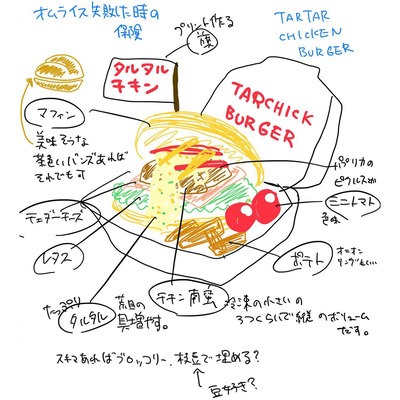 オムライス失敗した時の
保険
プリント作る
旗
TARTAR
CHICKEN
BURGER
タルタル
チキン
TARCHICK
BURGER
マフィン
美味そうな
茶色いバンズあれば
それでも可
パプリカの
ピクルスか
ミニトマト
色味
チェダーチーズ
レタス
ポテト
オニオン
リングでも…
たっぷり
タルタル
荒目の
具増やす。
チキン南蛮
冷凍の小さいの
3つくらいで縦のボリューム
だす。
スキマあればブロッコリー、枝豆で埋める?
豆好き?